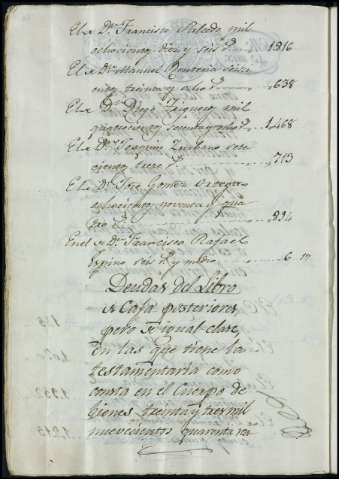 El a Dn. Francisco Salcedo mil
ochocientos diez y seis ps. 1,816
El a Dn. Manuel seis
cientos treinta y ocho ps. 638
El a Dn. Diego mil
quatrocientos sesenta y ocho ps. 1,468
El a Dn. Joaquin sete
cientos trece ps. 713
El a Dn. Jose Gomez
ochocientos noventa y qua
tro ps. 894
En el a Dn. Francisco Rafael
Espino seis ps. y medio 6 "
Deudas del Libro
de Caja posteriores,
pero de igual clase
en las que tiene la
testamentaría como
consta en el Cuerpo de
bienes treinta y tres mil
nuevecientos quarenta